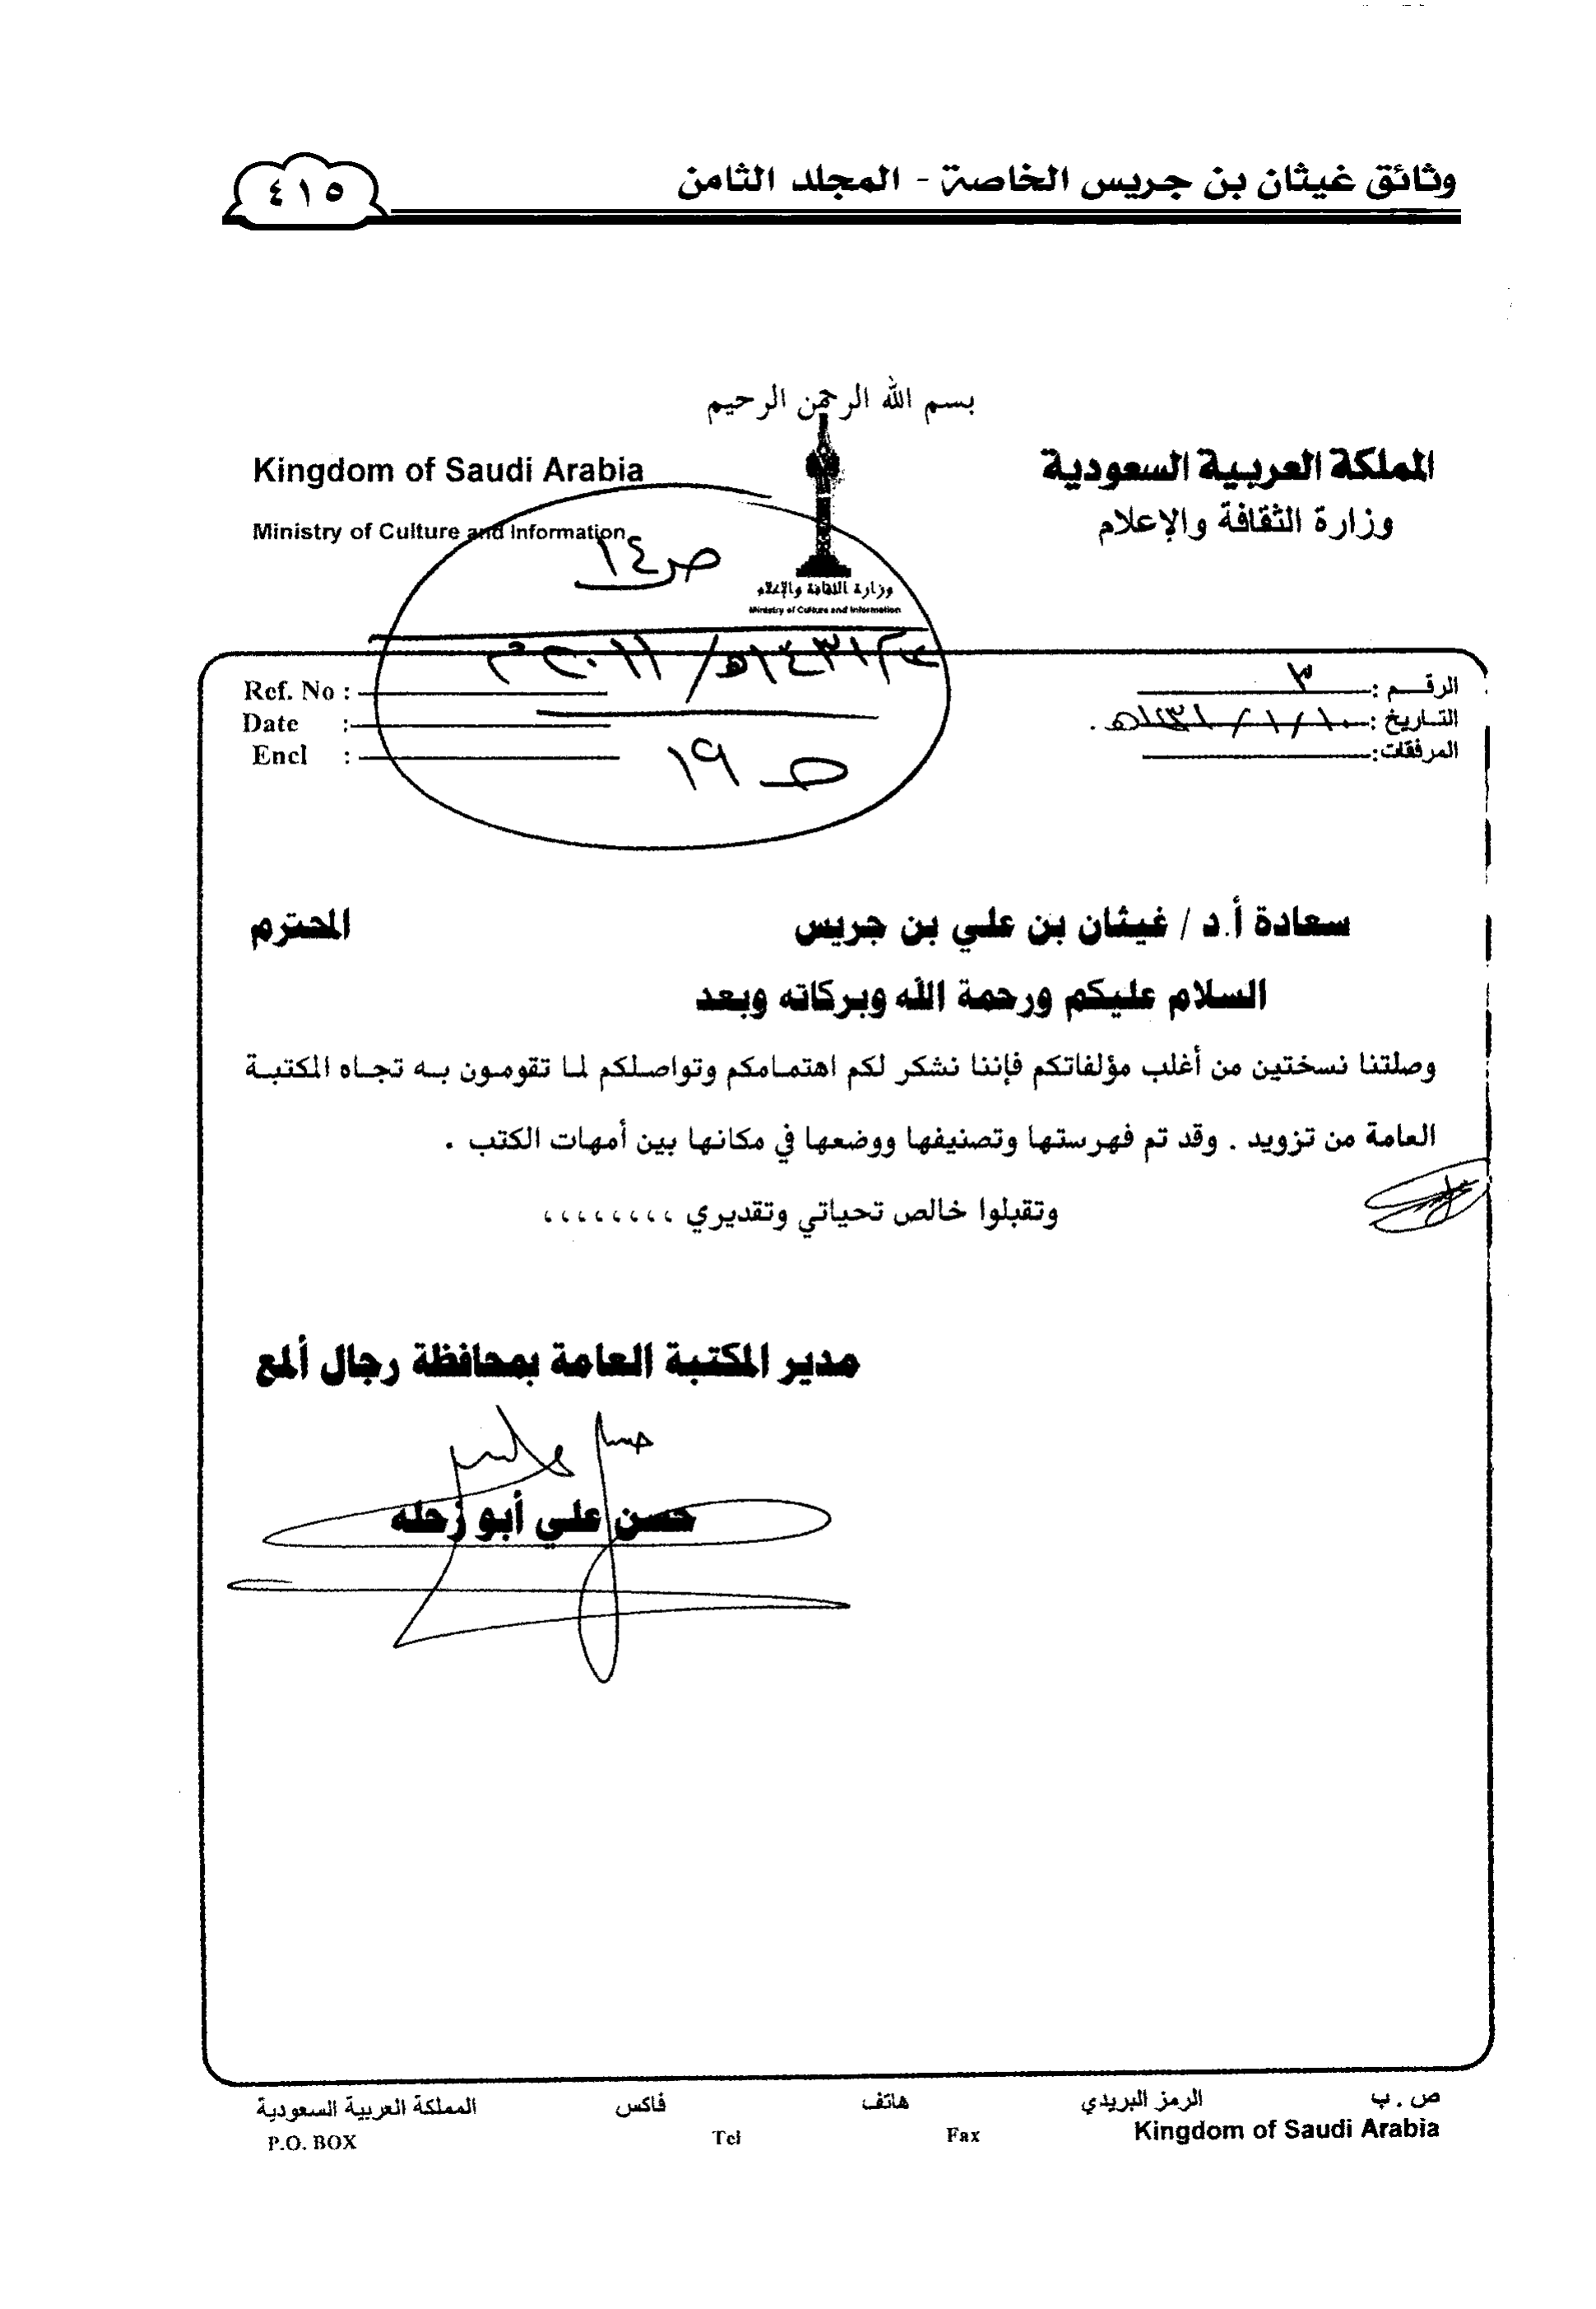 وثائق غيثان بن جريس الخاصة - المجلد الثامن
٤١٥
بسم الله الرحمن الرحيم
المملكة العربية السعودية
وزارة الثقافة والإعلام
Kingdom of Saudi Arabia
Ministry of Culture and Information
وزارة الثقافة والإعلام
Ministry of Culture and Information
ص١٤
١٤٣١هـ / ٢٠١١م
ص ١٩
الرقم : ٣
التاريخ : ١٠ / ١ / ١٤٣١هـ .
المرفقات :
Ref. No :
Date :
Encl :
سعادة أ.د / غيثان بن علي بن جريس المحترم
السلام عليكم ورحمة الله وبركاته وبعد
وصلتنا نسختين من أغلب مؤلفاتكم فإننا نشكر لكم اهتمامكم وتواصلكم لما تقومون به تجاه المكتبة
العامة من تزويد . وقد تم فهرستها وتصنيفها ووضعها في مكانها بين أمهات الكتب .
وتقبلوا خالص تحياتي وتقديري ،،،،،،،،
مدير المكتبة العامة بمحافظة رجال ألمع
حسن علي أبو زحله
ص . ب الرمز البريدي هاتف فاكس المملكة العربية السعودية
P.O. BOX Tel Fax Kingdom of Saudi Arabia